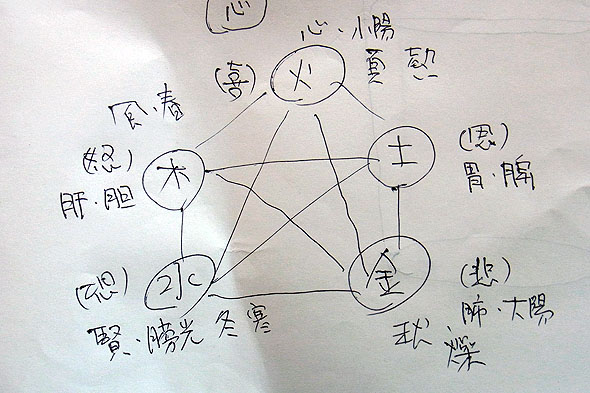 心
心・小陽
(喜) 火 夏 熱
・春
(怒) 木 土 (思)
肝・胆 胃・脾
(恐) 水 金 (悲)
賢・膀光 冬 寒 秋 肺・大陽
燥